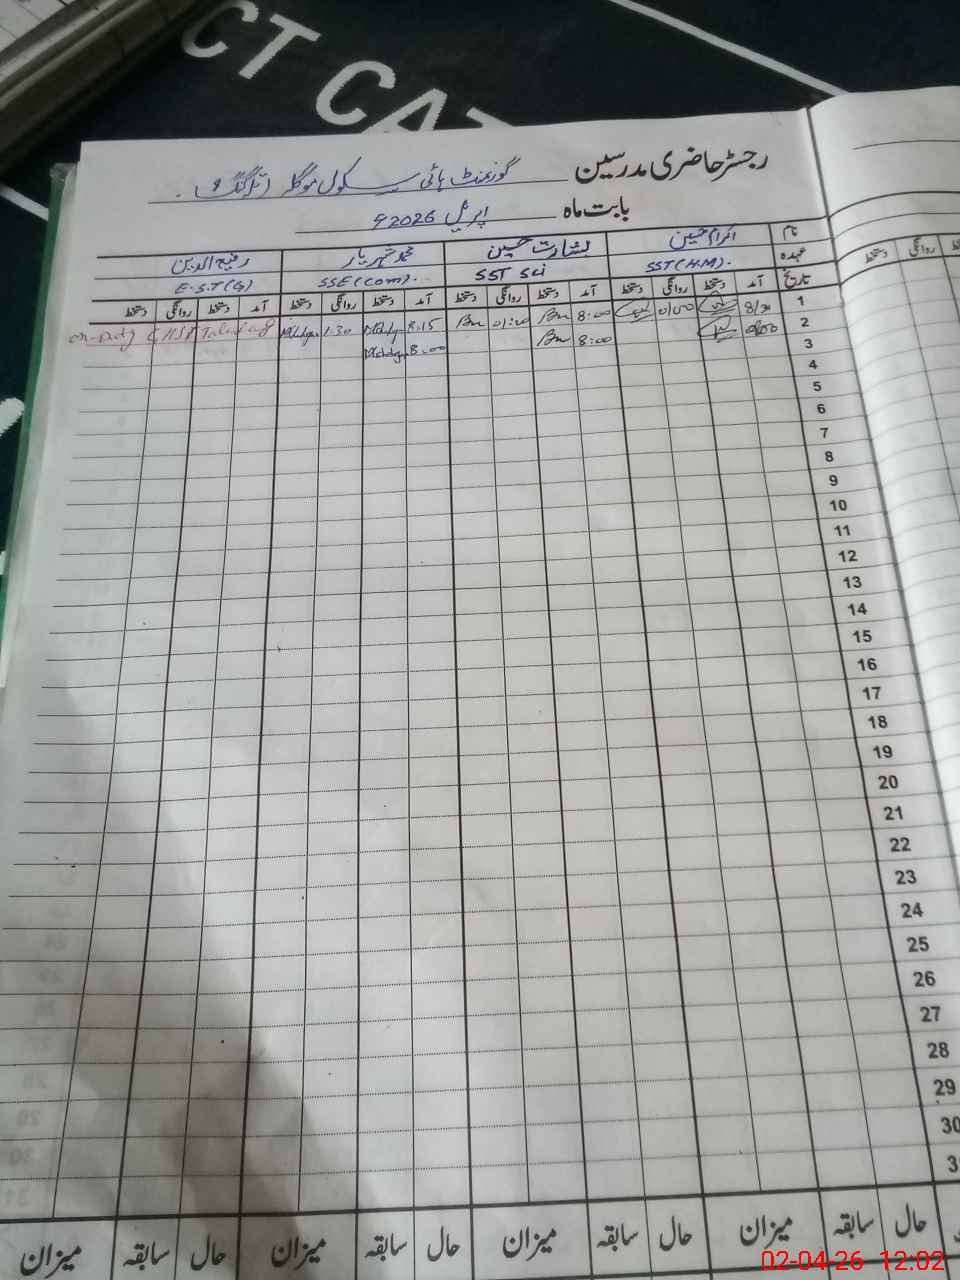 CT CAT
رجسٹر حاضری مدرسین گورنمنٹ ہائی سکول موگلہ
بابت ماہ اپریل 2026ء
نام اکرام حسین بشارت حسین محمد شہریار رفیع الدین
عہدہ SST (H.M). SST Sci SSE (Com). E.S.T (G)
تاریخ آمد دستخط روانگی دستخط آمد دستخط روانگی دستخط آمد دستخط روانگی دستخط آمد دستخط روانگی دستخط
دستخط روانگی
1 8:00 01:00 8:15 1:30 on-Duty
2 8:00 8:00
3
4
5
6
7
8
9
10
11
12
13
14
15
16
17
18
19
20
21
22
23
24
25
26
27
28
29
30
31
حال سابقہ میزان حال سابقہ میزان حال سابقہ میزان حال سابقہ میزان
02-04-26 12:02